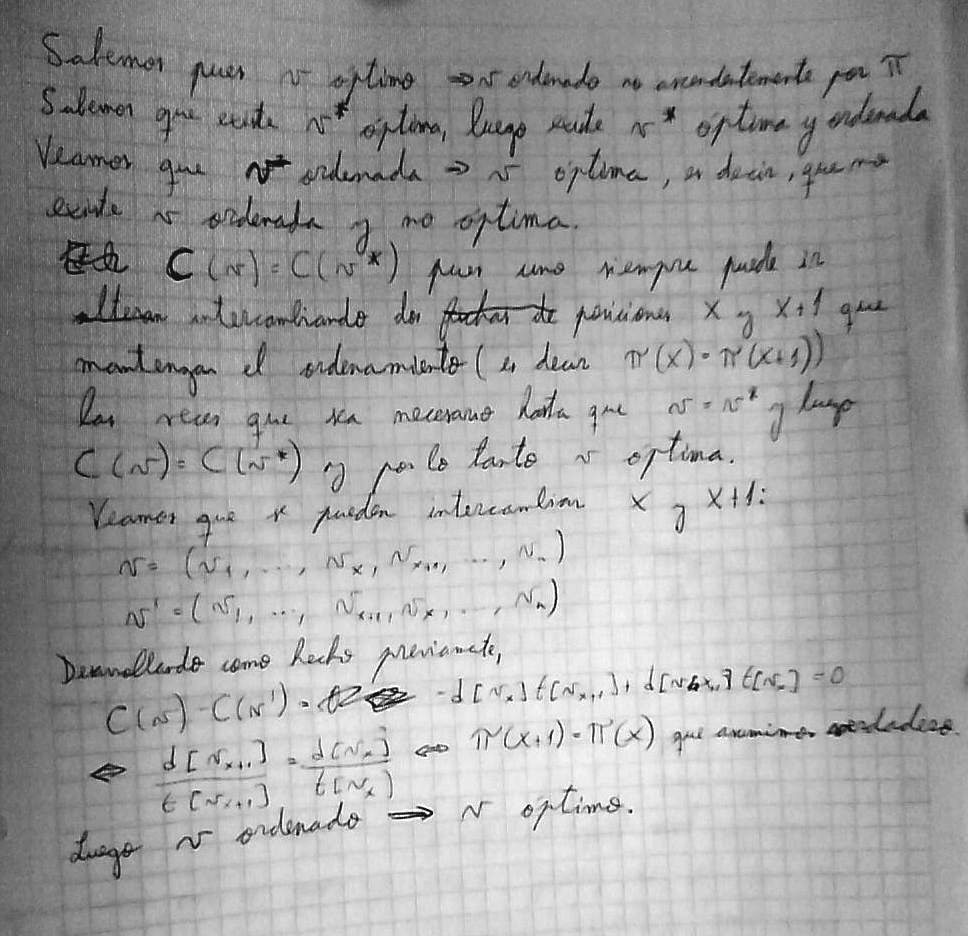 Sabemos pues v optimo ⇒ v ordenado no ascendentemente por π
Sabemos que existe v* óptima, luego existe v* óptima y ordenada
Veamos que v ordenada ⇒ v óptima, es decir, que no
existe v ordenada y no optima.
C(v) = C(v*) pues uno siempre puede ir
intercambiando dos posiciones x y x+1 que
mantengan el ordenamiento (es decir π(x) = π(x+1))
las veces que sea necesario hasta que v = v* y luego
C(v) = C(v*) y por lo tanto v optima.
Veamos que se pueden intercambiar x y x+1:
v = (v₁, ..., vₓ, vₓ₊₁, ..., vₙ)
v' = (v₁, ..., vₓ₊₁, vₓ, ..., vₙ)
Desarrollando como hecho previamente,
C(v) - C(v') = -d[vₓ] t[vₓ₊₁] + d[vₓ₊₁] t[vₓ] = 0
⇔ d[vₓ₊₁] / t[vₓ₊₁] = d[vₓ] / t[vₓ] ⇔ π(x+1) = π(x) que asumimos verdadero.
Luego v ordenado ⇒ v optimo.